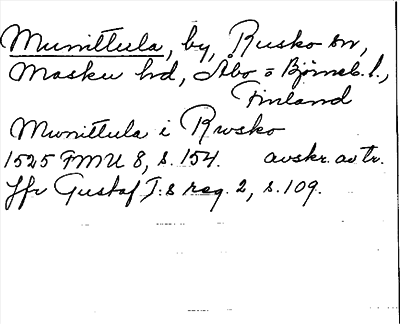 Munittula, by, Rusko sn,
Masku hd, Åbo o Björneb. l.,
Finland
Munittula i Rwsko
1525 FMU 8, s. 154. avskr. av tr.
Jfr Gustaf I:s reg. 2, s. 109.